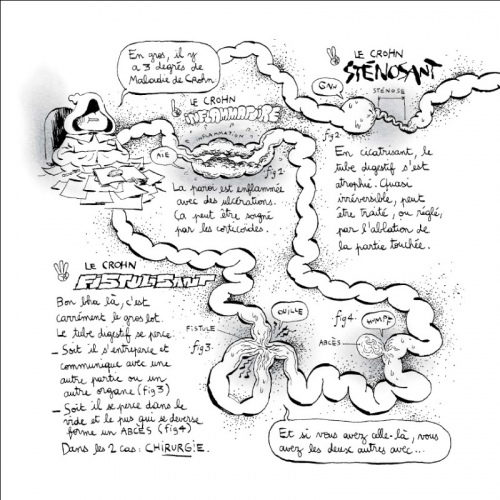 En gros, il y
a 3 degrés de
Maladie de Crohn.
LE CROHN
INFLAMMATOIRE
INFLAMMATION
AIE
fig1.
La paroi est enflammée
avec des ulcérations.
Ça peut être soigné
par les corticoïdes.
LE CROHN
STÉNOSANT
STÉNOSE
GNN
fig2.
En cicatrisant, le
tube digestif s'est
atrophié. Quasi
irréversible, peut
être traité, ou réglé,
par l'ablation de
la partie touchée.
LE CROHN
FISTULISANT
Bon bha là, c'est
carrément le gros lot.
Le tube digestif se perce
_ Soit il s'entreperce et
communique avec une
autre partie ou un
autre organe (fig3)
_ Soit il se perce dans le
vide et le pus qui se déverse
forme un ABCÈS (fig4)
Dans les 2 cas : CHIRURGIE.
FISTULE
fig3.
OUILLE
fig4.
WMPF
ABCÈS
Et si vous avez celle-là, vous
avez les deux autres avec...